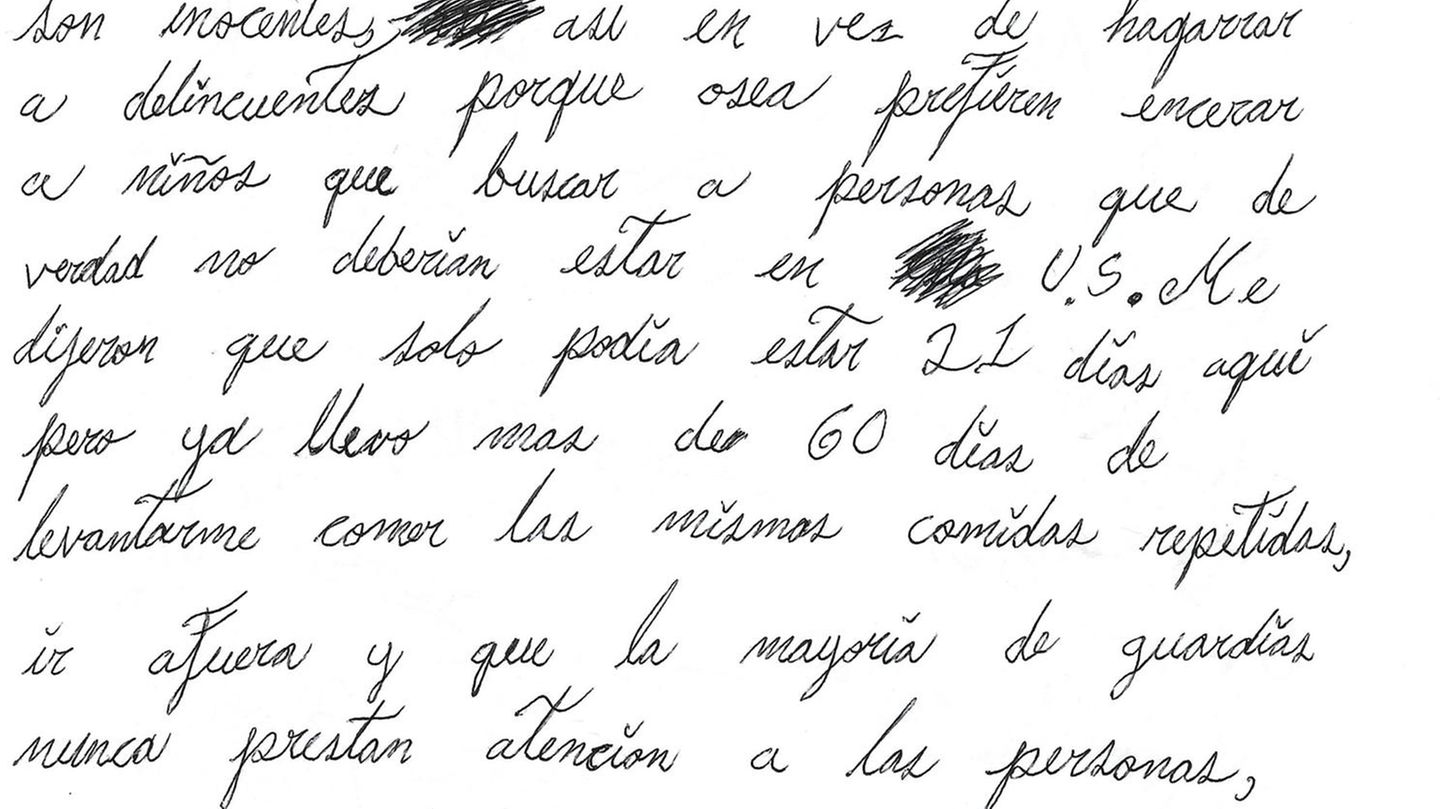 son inocentes, asi en vez de hagarrar
a delincuentes porque osea prefieren encerar
a niños que buscar a personas que de
verdad no deberían estar en U.S. Me
dijeron que solo podía estar 21 días aquí
pero ya llevo mas de 60 días de
levantarme comer las mismas comidas repetidas,
ir afuera y que la mayoría de guardias
nunca prestan atención a las personas,